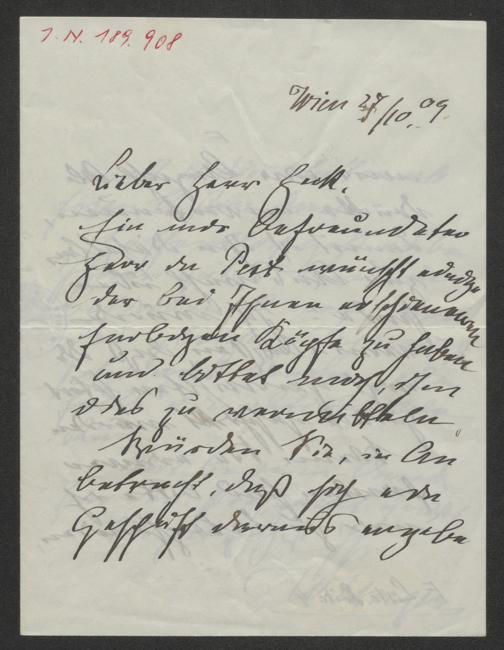 I. N. 189.908
Wien 27/10. 09.
Lieber Herr Eck.
Ein uns befreundeter
Herr wünscht einige
der bei Ihnen erschienenen
farbigen Köpfe zu haben
und bittet mich, ihm
dies zu vermitteln.
Würden Sie, in An
betracht, daß sich ein
Geschäft daraus ergeben